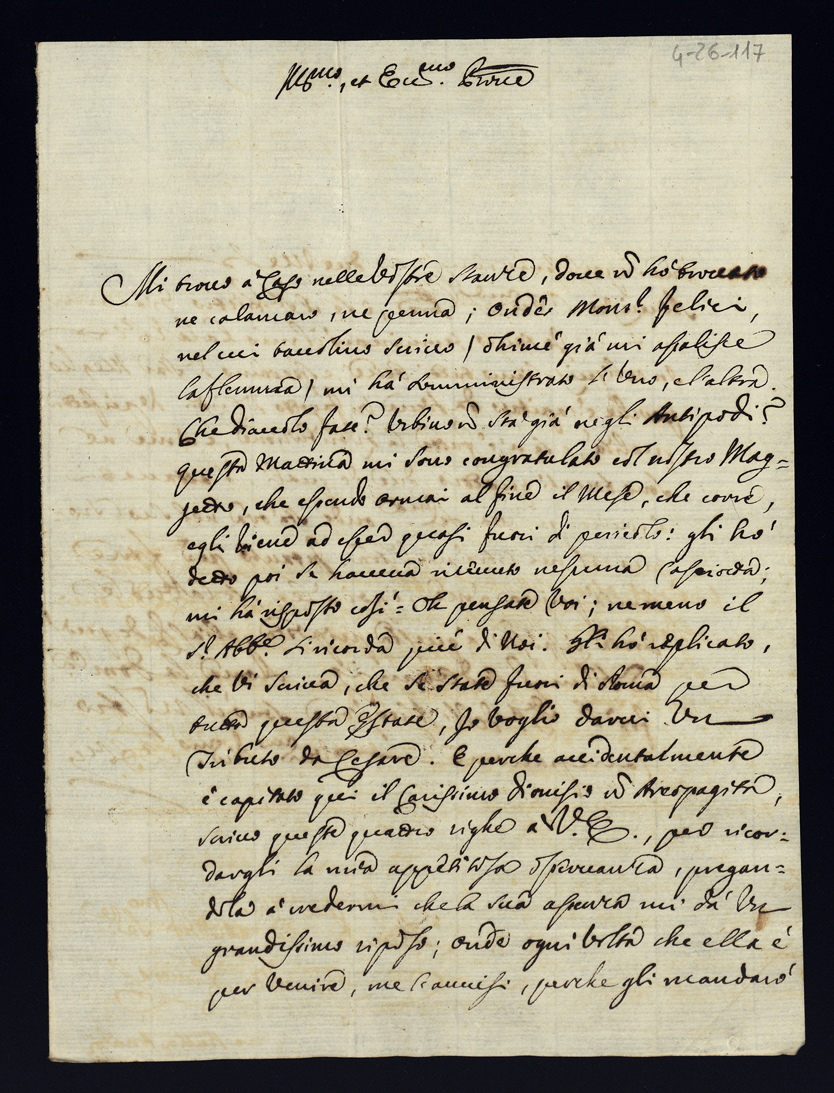 4-26-117
Ill.mo, et Ecc.mo Prone
Mi trovo à Caso nelle Vostre Stanze, dove ñ hò trovato
ne calamaro, ne penna; onde Mons.r felici,
nel cui tavolino scrivo / ohimè già mi assalisce
la flemma / mi hà somministrato l'Uno, e l'altra.
Che diavolo fate? Urbino ñ stà già negli Antipodi?
questa Mattina mi sono congratulato col nostro Mag=
getto, che essendo ormai al fine il Mese, che corre,
egli viene ad esser quasi fuori di pericolo: gli hò
detto poi se haveva ricevuto nessuna
mi hà risposto così = Oh pensate Voi; nemeno il
S.r Abb.e si ricorda più di Noi. Gli hò replicato,
che Vi scriva, che se state fuori di Roma per
tutta questa Estate, Io voglio darvi Un
Tributo da Cesare. E perche accidentalmente
è capitato qui il Carissimo Dionisio ñ Areopagita,
scrivo queste quattro righe à V. E., per ricor=
dargli la mia appetitosa osservanza, pregan=
dola à credermi che la sua assenza mi dà Un
grandissimo riposo; onde ogni volta che ella è
per venire, me l'avvisi, perche gli mandarò